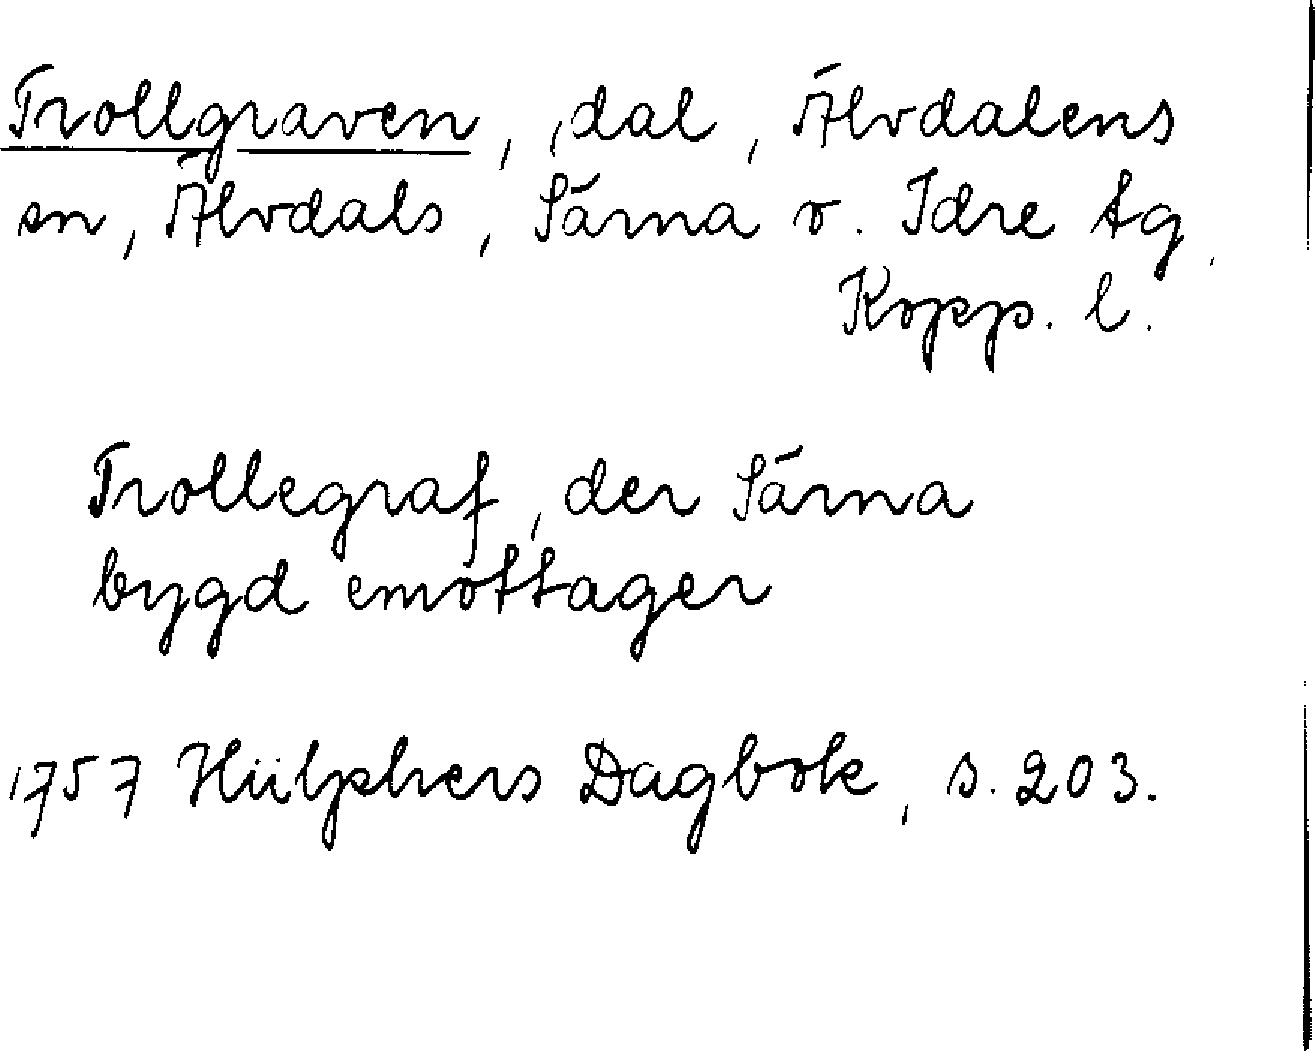 Trollgraven, dal, Älvdalens
sn, Älvdals, Särna o. Idre tg,
Kopp. l.
Trollegraf, der Särna
bygd emottager
1757 Hülphers Dagbok, s. 203.